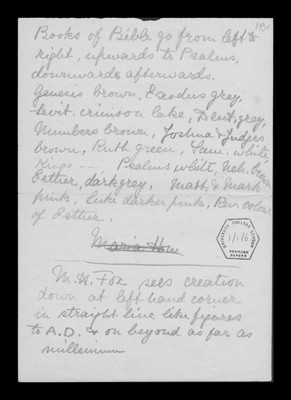 1B.
Books of Bible go from left to
right, upwards to Psalms,
downwards afterwards.
Genesis brown, Exodus grey,
Levit. crimson lake, Deut. grey,
Numbers brown, Joshua & Judges
brown, Ruth green, Sam. white,
Kings -- Psalms white, Neh. brown
Esther, dark grey, Matt. & Mark
pink, Luke darker pink, Rev. colour
of Esther.
Maria
UNIVERSITY COLLEGE LONDON
PEARSON PAPERS
M. H. Fox, sees creation
down at left hand corner
in straight line like figures
to A.D. & on beyond as far as
millenium